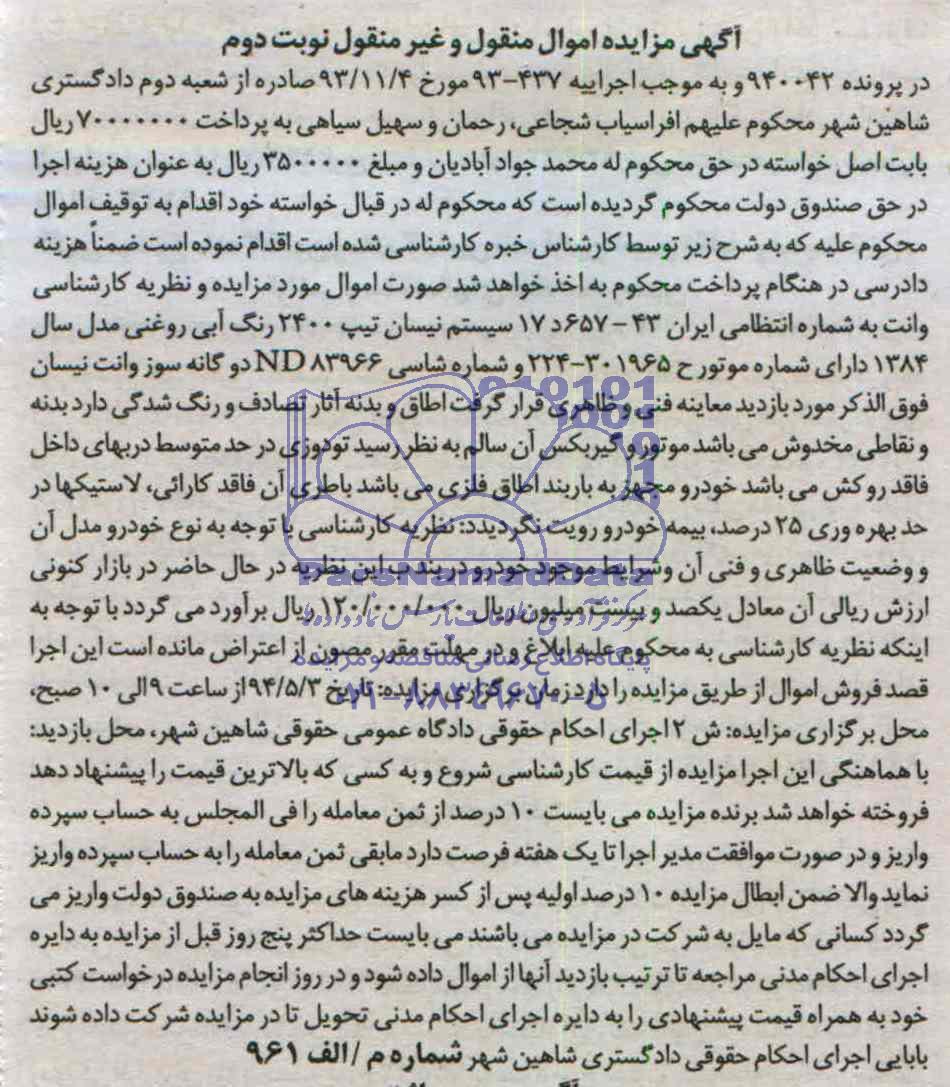 آگهی مزایده اموال منقول و غیر منقول نوبت دوم
در پرونده ۹۴۰۰۴۲ و به موجب اجراییه ۴۳۷-۹۳ مورخ ۹۳/۱۱/۴ صادره از شعبه دوم دادگستری
شاهین شهر محکوم علیهم افراسیاب شجاعی، رحمان و سهیل سیاهی به پرداخت ۷۰۰۰۰۰۰۰ ریال
بابت اصل خواسته در حق محکوم له محمد جواد آبادیان و مبلغ ۳۵۰۰۰۰۰ ریال به عنوان هزینه اجرا
در حق صندوق دولت محکوم گردیده است که محکوم له در قبال خواسته خود اقدام به توقیف اموال
محکوم علیه که به شرح زیر توسط کارشناس خبره کارشناسی شده است اقدام نموده است ضمناً هزینه
دادرسی در هنگام پرداخت محکوم به اخذ خواهد شد صورت اموال مورد مزایده و نظریه کارشناسی
وانت به شماره انتظامی ایران ۴۳ - ۶۵۷د ۱۷ سیستم نیسان تیپ ۲۴۰۰ رنگ آبی روغنی مدل سال
۱۳۸۴ دارای شماره موتور ح ۳۰۱۹۶۵-۲۲۴ و شماره شاسی ND ۸۳۹۶۶ دو گانه سوز وانت نیسان
فوق الذکر مورد بازدید معاینه فنی و ظاهری قرار گرفت اطاق و بدنه آثار تصادف و رنگ شدگی دارد بدنه
و نقاطی مخدوش می باشد موتور و گیربکس آن سالم به نظر رسید تودوزی در حد متوسط دربهای داخل
فاقد روکش می باشد خودرو مجهز به باربند اطاق فلزی می باشد باطری آن فاقد کارائی، لاستیکها در
حد بهره وری ۲۵ درصد، بیمه خودرو رویت نگردیدد: نظریه کارشناسی با توجه به نوع خودرو مدل آن
و وضعیت ظاهری و فنی آن وشرایط موجود خودرو در بند ب این نظریه در حال حاضر در بازار کنونی
ارزش ریالی آن معادل یکصد و بیست میلیون ریال ۱۲۰/۰۰۰/۰۰۰ ریال برآورد می گردد با توجه به
اینکه نظریه کارشناسی به محکوم علیه ابلاغ و در مهلت مقرر مصون از اعتراض مانده است این اجرا
قصد فروش اموال از طریق مزایده را دارد زمان برگزاری مزایده: تاریخ ۹۴/۵/۳ از ساعت ۹ الی ۱۰ صبح،
محل برگزاری مزایده: ش ۲ اجرای احکام حقوقی دادگاه عمومی حقوقی شاهین شهر، محل بازدید:
با هماهنگی این اجرا مزایده از قیمت کارشناسی شروع و به کسی که بالاترین قیمت را پیشنهاد دهد
فروخته خواهد شد برنده مزایده می بایست ۱۰ درصد از ثمن معامله را فی المجلس به حساب سپرده
واریز و در صورت موافقت مدیر اجرا تا یک هفته فرصت دارد مابقی ثمن معامله را به حساب سپرده واریز
نماید والا ضمن ابطال مزایده ۱۰ درصد اولیه پس از کسر هزینه های مزایده به صندوق دولت واریز می
گردد کسانی که مایل به شرکت در مزایده می باشند می بایست حداکثر پنج روز قبل از مزایده به دایره
اجرای احکام مدنی مراجعه تا ترتیب بازدید آنها از اموال داده شود و در روز انجام مزایده درخواست کتبی
خود به همراه قیمت پیشنهادی را به دایره اجرای احکام مدنی تحویل تا در مزایده شرکت داده شوند
بابایی اجرای احکام حقوقی دادگستری شاهین شهر شماره م /الف ۹۶۱
ParsNamadData
پایگاه اطلاع رسانی مناقصه و مزایده